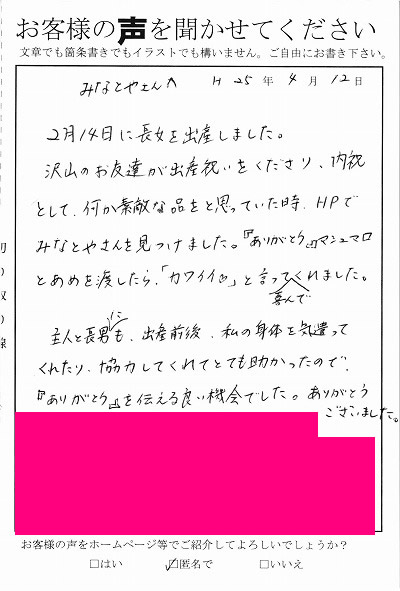 お客様の声を聞かせてください
文章でも箇条書きでもイラストでも構いません。ご自由にお書き下さい。
みなとやさんへ H 25 年 4 月 12 日
2月14日に長女を出産しました。
沢山のお友達が出産祝いをくださり、内祝
として、何か素敵な品をと思っていた時、HPで
みなとやさんを見つけました。『ありがとう』マシュマロ
とあめを渡したら、「カワイイ♡」と言ってくれました。
喜んで
主人と長男にも、出産前後、私の身体を気遣って
くれたり、協力してくれてとても助かったので、
『ありがとう』を伝える良い機会でした。ありがとう
ございました。
お客様の声をホームページ等でご紹介してよろしいでしょうか?
□はい ☑匿名で □いいえ